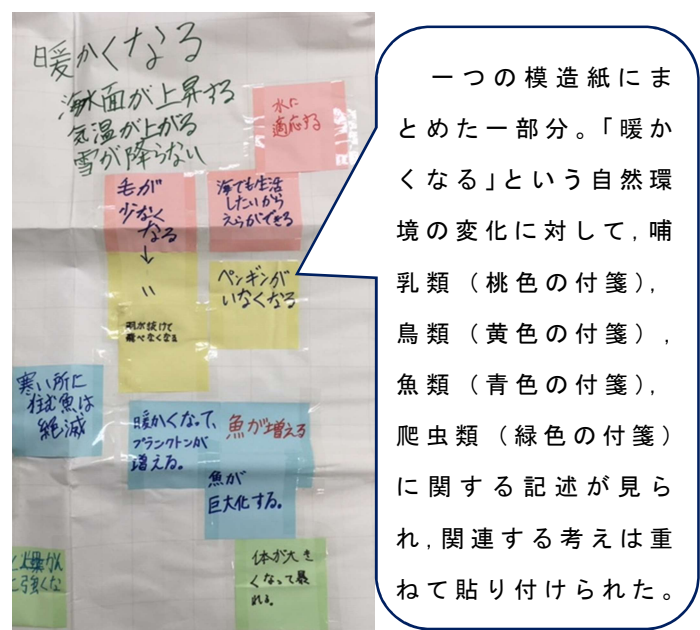 暖かくなる
海水面が上昇する
気温が上がる
雪が降らない
水に
適応する
毛が
少なく
なる
↓
〃
羽が抜けて
飛べなくなる
海でも生活
したいから
えらができる
ペンギンが
いなくなる
寒い所に
住む魚は
絶滅
暖かくなって、
プランクトンが
増える。
魚が増える
魚が
巨大化する。
体が大き
くなって暴
れる。
に強くな
一つの模造紙にま
とめた一部分。「暖か
くなる」という自然環
境の変化に対して,哺
乳類（桃色の付箋),
鳥類（黄色の付箋）,
魚類（青色の付箋),
爬虫類（緑色の付箋）
に関する記述が見ら
れ,関連する考えは重
ねて貼り付けられた。